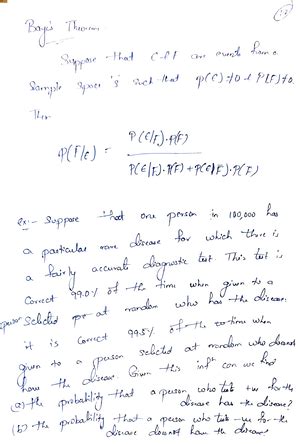 Baye's Theorem
Suppose that E & F are events from a
Sample space 's' such that p(E)≠0 & P(F)≠0.
Then
P(F/E) = P(E/F).P(F)
P(E/F).P(F)+P(E/F̄).P(F̄)
Ex:- Suppose that one person in 100,000 has
a particular rare disease for which there is
a fairly accurate diagnostic test This test is
correct 99.0% of the time when given to a
person selected at random who has the disease.
it is correct 99.5% of the time when
given to a person selected at random who doesnot
have the disease. Given this infn can we find
(a) the probability that a person who tests +ve for the
disease has the disease?
(b) the probability that a person who tests -ve for the
disease doesnot have the disease?